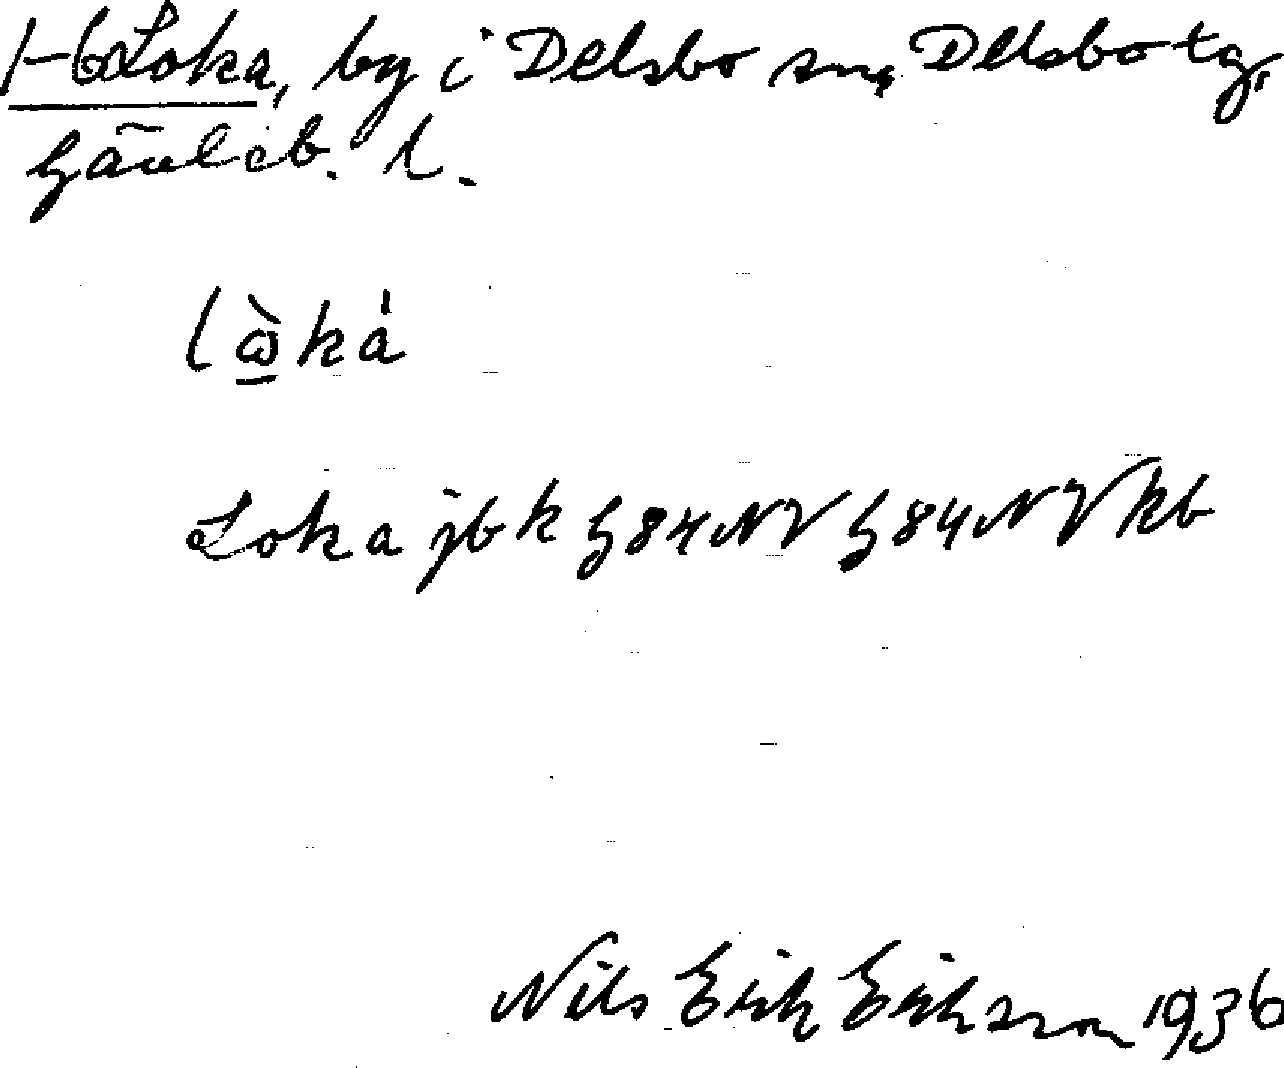 1-6 Loka, by i Delsbo sn, Delsbo tg,
Gävleb. l.
lὼ̱ka̍
Loka jbk G84NV G84NVkb
Nils Erik Eriksson 1936